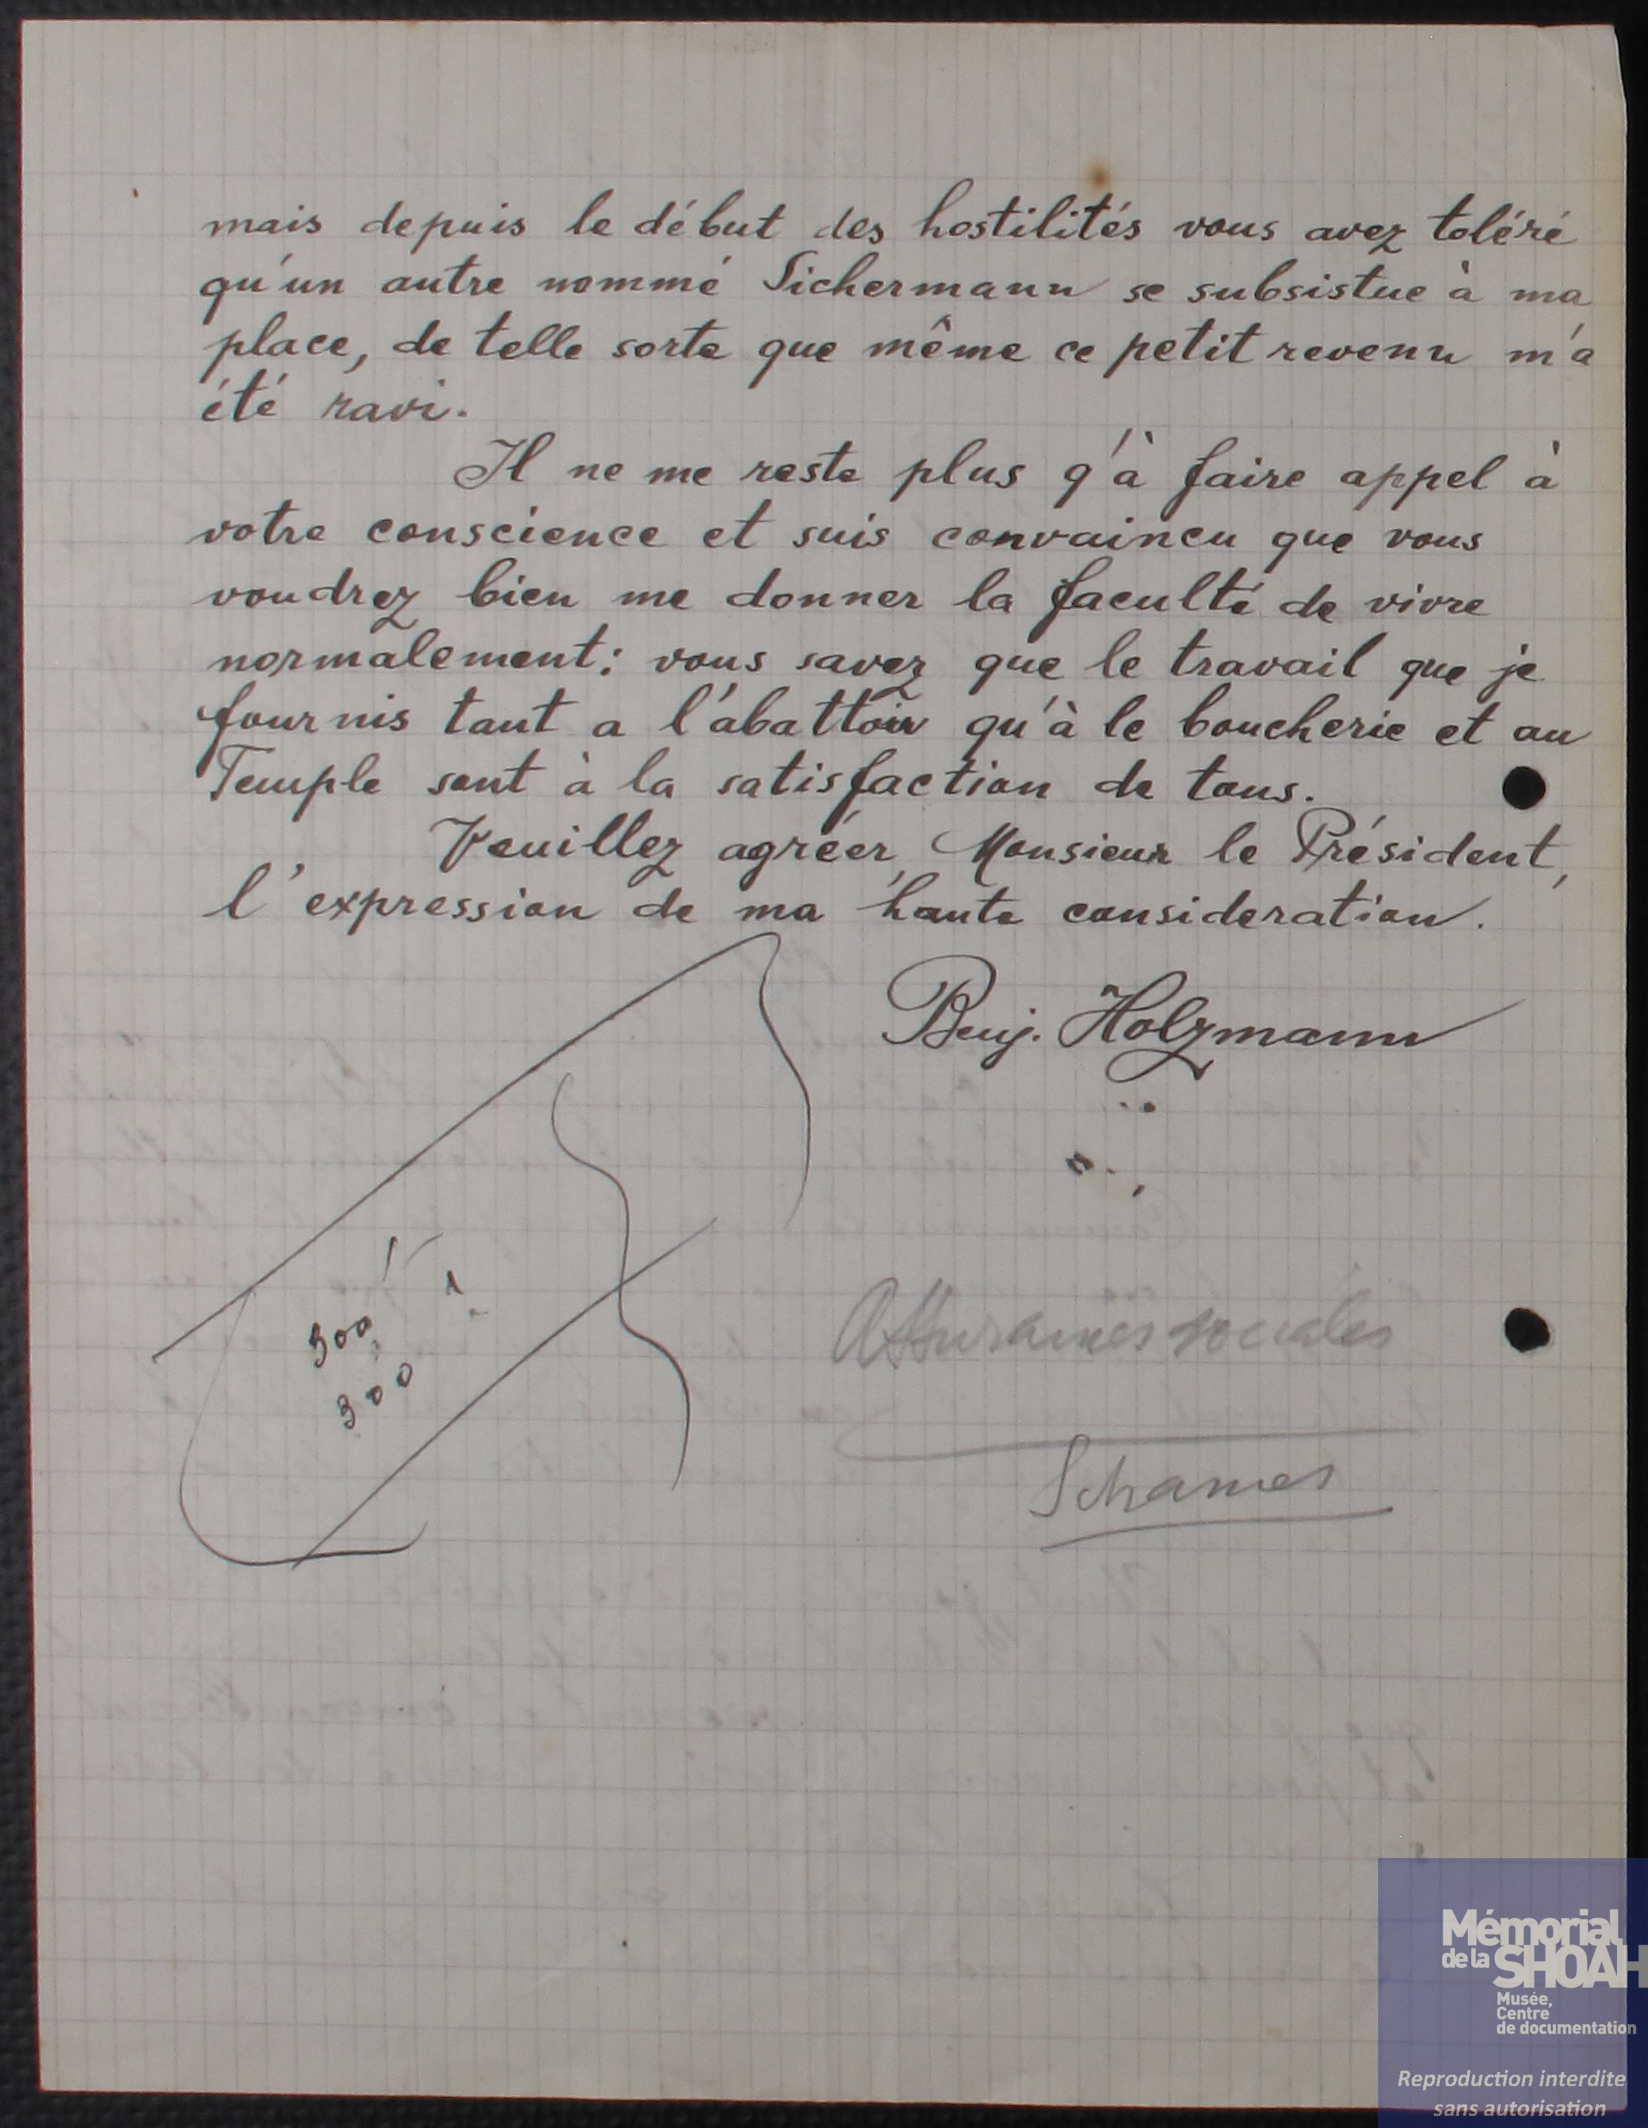 mais depuis le début des hostilités vous avez toléré
qu'un autre nommé Sichermann se subsistue à ma
place, de telle sorte que même ce petit revenu m'a
été ravi.
Il ne me reste plus q'à faire appel à
votre conscience et suis convaincu que vous
voudrez bien me donner la faculté de vivre
normalement: vous savez que le travail que je
fournis tant a l'abattoir qu'à le boucherie et au
Temple sont à la satisfaction de tous.
Veuillez agréer, Monsieur le Président,
l'expression de ma haute consideration.
Benj. Holzmann
300
300
Assurances sociales
Schames
Mémorial
de la SHOAH
Musée,
Centre
de documentation
Reproduction interdite
sans autorisation